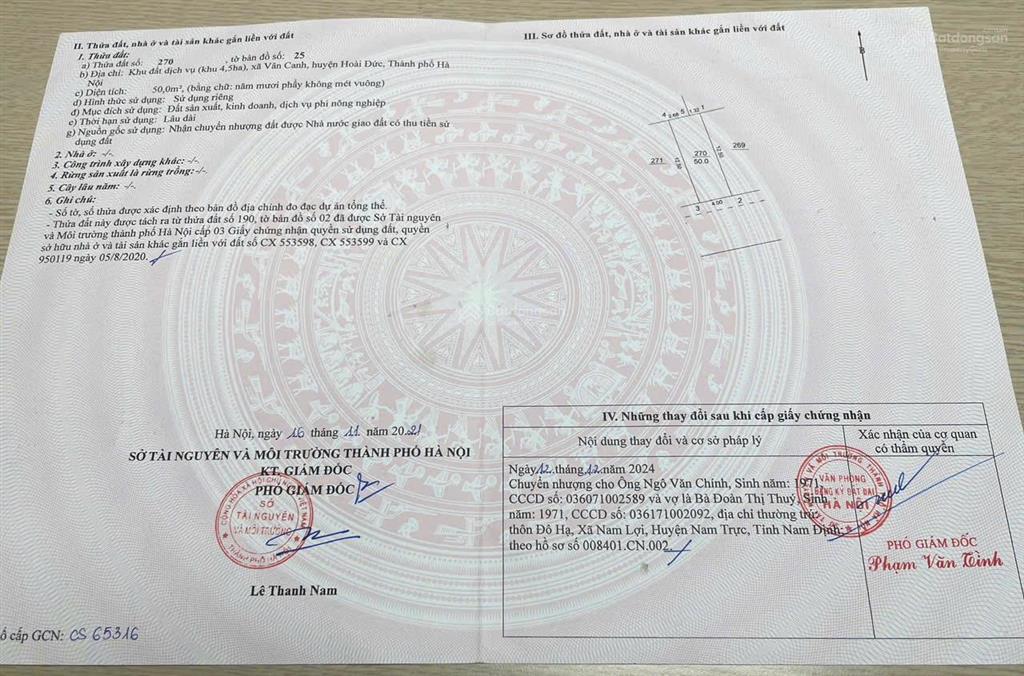 II. Thửa đất, nhà ở và tài sản khác gắn liền với đất
1. Thửa đất:
a) Thửa đất số: 270 , tờ bản đồ số: 25
b) Địa chỉ: Khu đất dịch vụ (khu 4,5ha), xã Vân Canh, huyện Hoài Đức, Thành phố Hà
Nội
c) Diện tích: 50,0m², (bằng chữ: năm mươi phẩy không mét vuông)
d) Hình thức sử dụng: Sử dụng riêng
đ) Mục đích sử dụng: Đất sản xuất, kinh doanh, dịch vụ phi nông nghiệp
e) Thời hạn sử dụng: Lâu dài
g) Nguồn gốc sử dụng: Nhận chuyển nhượng đất được Nhà nước giao đất có thu tiền sử
dụng đất
2. Nhà ở: -/-
3. Công trình xây dựng khác: -/-
4. Rừng sản xuất là rừng trồng: -/-
5. Cây lâu năm: -/-
6. Ghi chú:
- Số tờ, số thửa được xác định theo bản đồ địa chính đo đạc dự án tổng thể.
- Thửa đất này được tách ra từ thửa đất số 190, tờ bản đồ số 02 đã được Sở Tài nguyên
và Môi trường thành phố Hà Nội cấp 03 Giấy chứng nhận quyền sử dụng đất, quyền
sở hữu nhà ở và tài sản khác gắn liền với đất số CX 553598, CX 553599 và CX
950119 ngày 05/8/2020.
Hà Nội, ngày 16 tháng 11 năm 2021
SỞ TÀI NGUYÊN VÀ MÔI TRƯỜNG THÀNH PHỐ HÀ NỘI
KT. GIÁM ĐỐC
PHÓ GIÁM ĐỐC
CỘNG HÒA XÃ HỘI CHỦ NGHĨA VIỆT NAM
SỞ
TÀI NGUYÊN
VÀ MÔI TRƯỜNG
THÀNH PHỐ HÀ NỘI
Lê Thanh Nam
ổ cấp GCN: CS 65316
III. Sơ đồ thửa đất, nhà ở và tài sản khác gắn liền với đất
B
4 2.68 5 1.32 1
271
12.50
270
50.0
12.50
269
3 4.00 2
IV. Những thay đổi sau khi cấp giấy chứng nhận
Nội dung thay đổi và cơ sở pháp lý
Xác nhận của cơ quan
có thẩm quyền
Ngày 12 tháng 12 năm 2024
Chuyển nhượng cho Ông Ngô Văn Chính, Sinh năm: 1971
CCCD số: 036071002589 và vợ là Bà Đoàn Thị Thuý, Sinh
năm: 1971, CCCD số: 036171002092, địa chỉ thường trú:
thôn Đô Hạ, Xã Nam Lợi, Huyện Nam Trực, Tỉnh Nam Định;
theo hồ sơ số 008401.CN.002
VĂN PHÒNG
ĐĂNG KÝ ĐẤT ĐAI
HÀ NỘI
PHÓ GIÁM ĐỐC
Phạm Văn Tình
Batdongsan